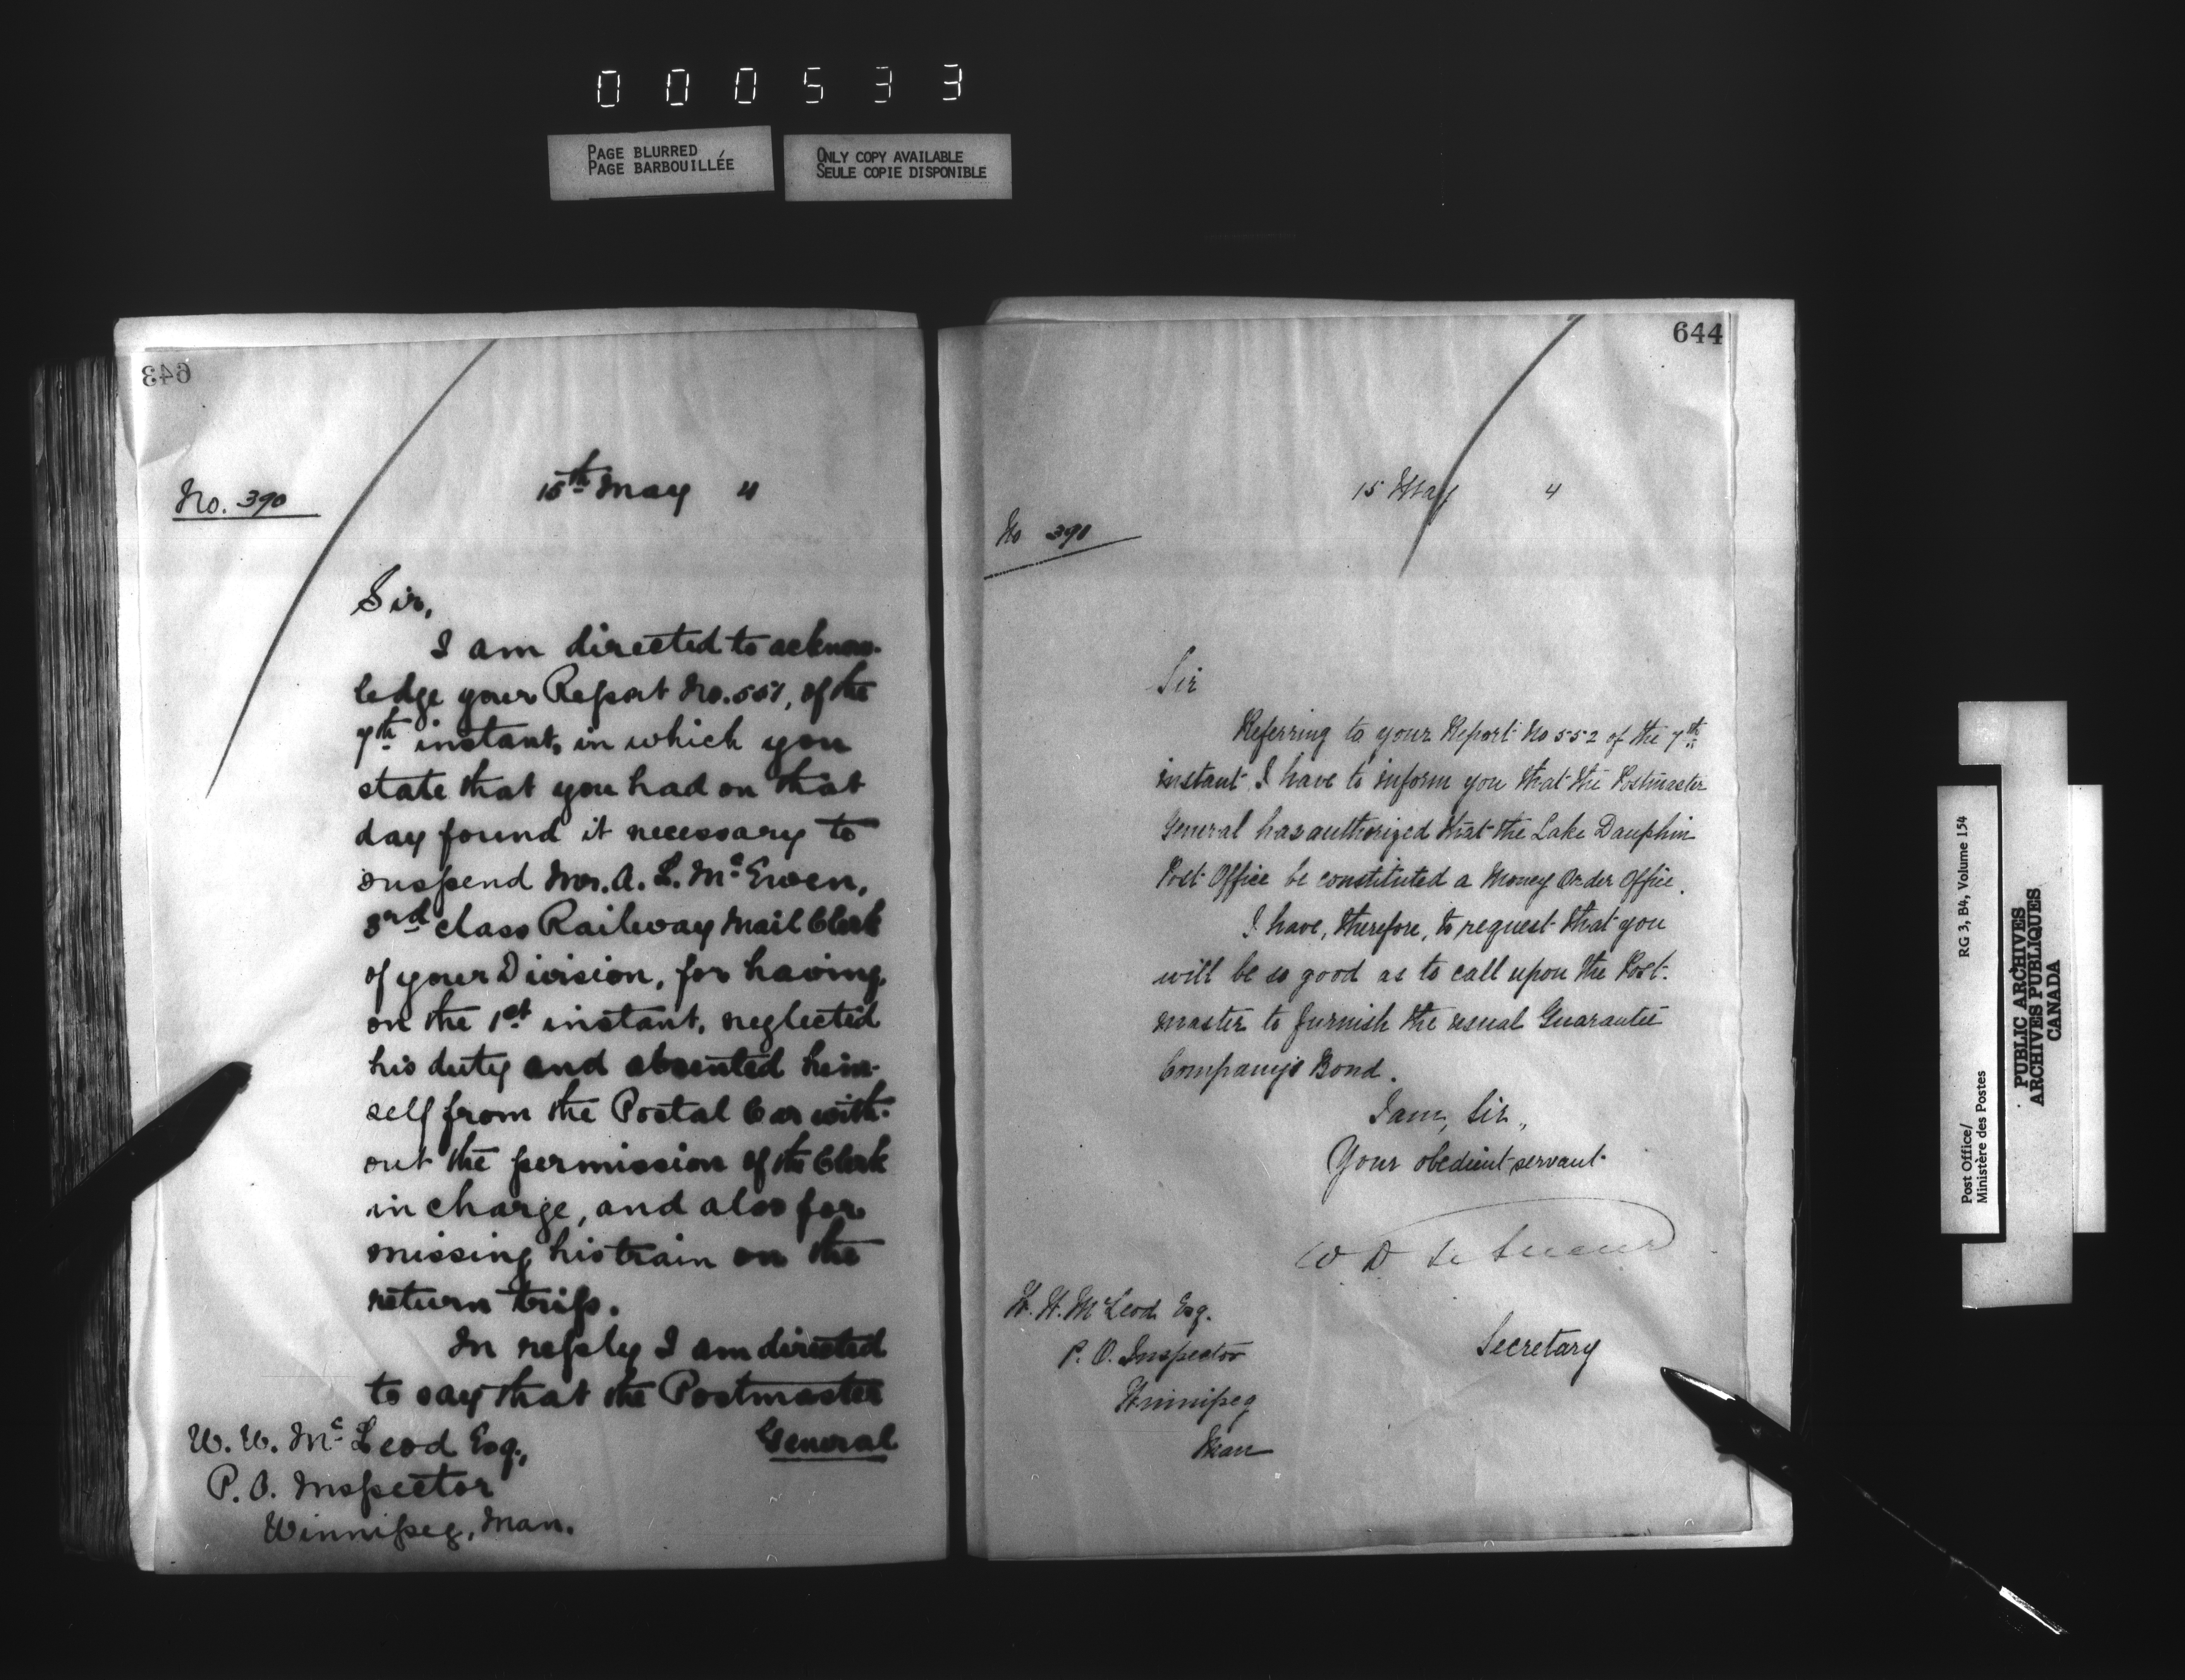 000533
PAGE BLURRED
PAGE BARBOUILLÉE
ONLY COPY AVAILABLE
SEULE COPIE DISPONIBLE
643
No. 390
15th May 4
Sir,
I am directed to acknow-
ledge your Report No. 551, of the
7th instant, in which you
state that you had on that
day found it necessary to
suspend Mr. A. L. McEwen,
3rd class Railway Mail Clerk
of your Division, for having,
on the 1st instant, neglected
his duty and absented him-
self from the Postal Car with-
out the permission of the Clerk
in charge, and also for
missing his train on the
return trip.
In reply I am directed
to say that the Postmaster
General
W. W. McLeod Esq.,
P. O. Inspector
Winnipeg, Man.
644
15 May 4
No 391
Sir
Referring to your Report No 552 of the 7th
instant I have to inform you that the Postmaster
General has authorized that the Lake Dauphin
Post Office be constituted a Money Order Office.
I have, therefore, to request that you
will be so good as to call upon the Post-
master to furnish the usual Guarantee
Company's Bond.
I am, Sir,
Your obedient servant
W D LeSueur
Secretary
W. W. McLeod Esq.
P. O. Inspector
Winnipeg
Man
Post Office/
Ministère des Postes
RG 3, B4, Volume 154
PUBLIC ARCHIVES
ARCHIVES PUBLIQUES
CANADA